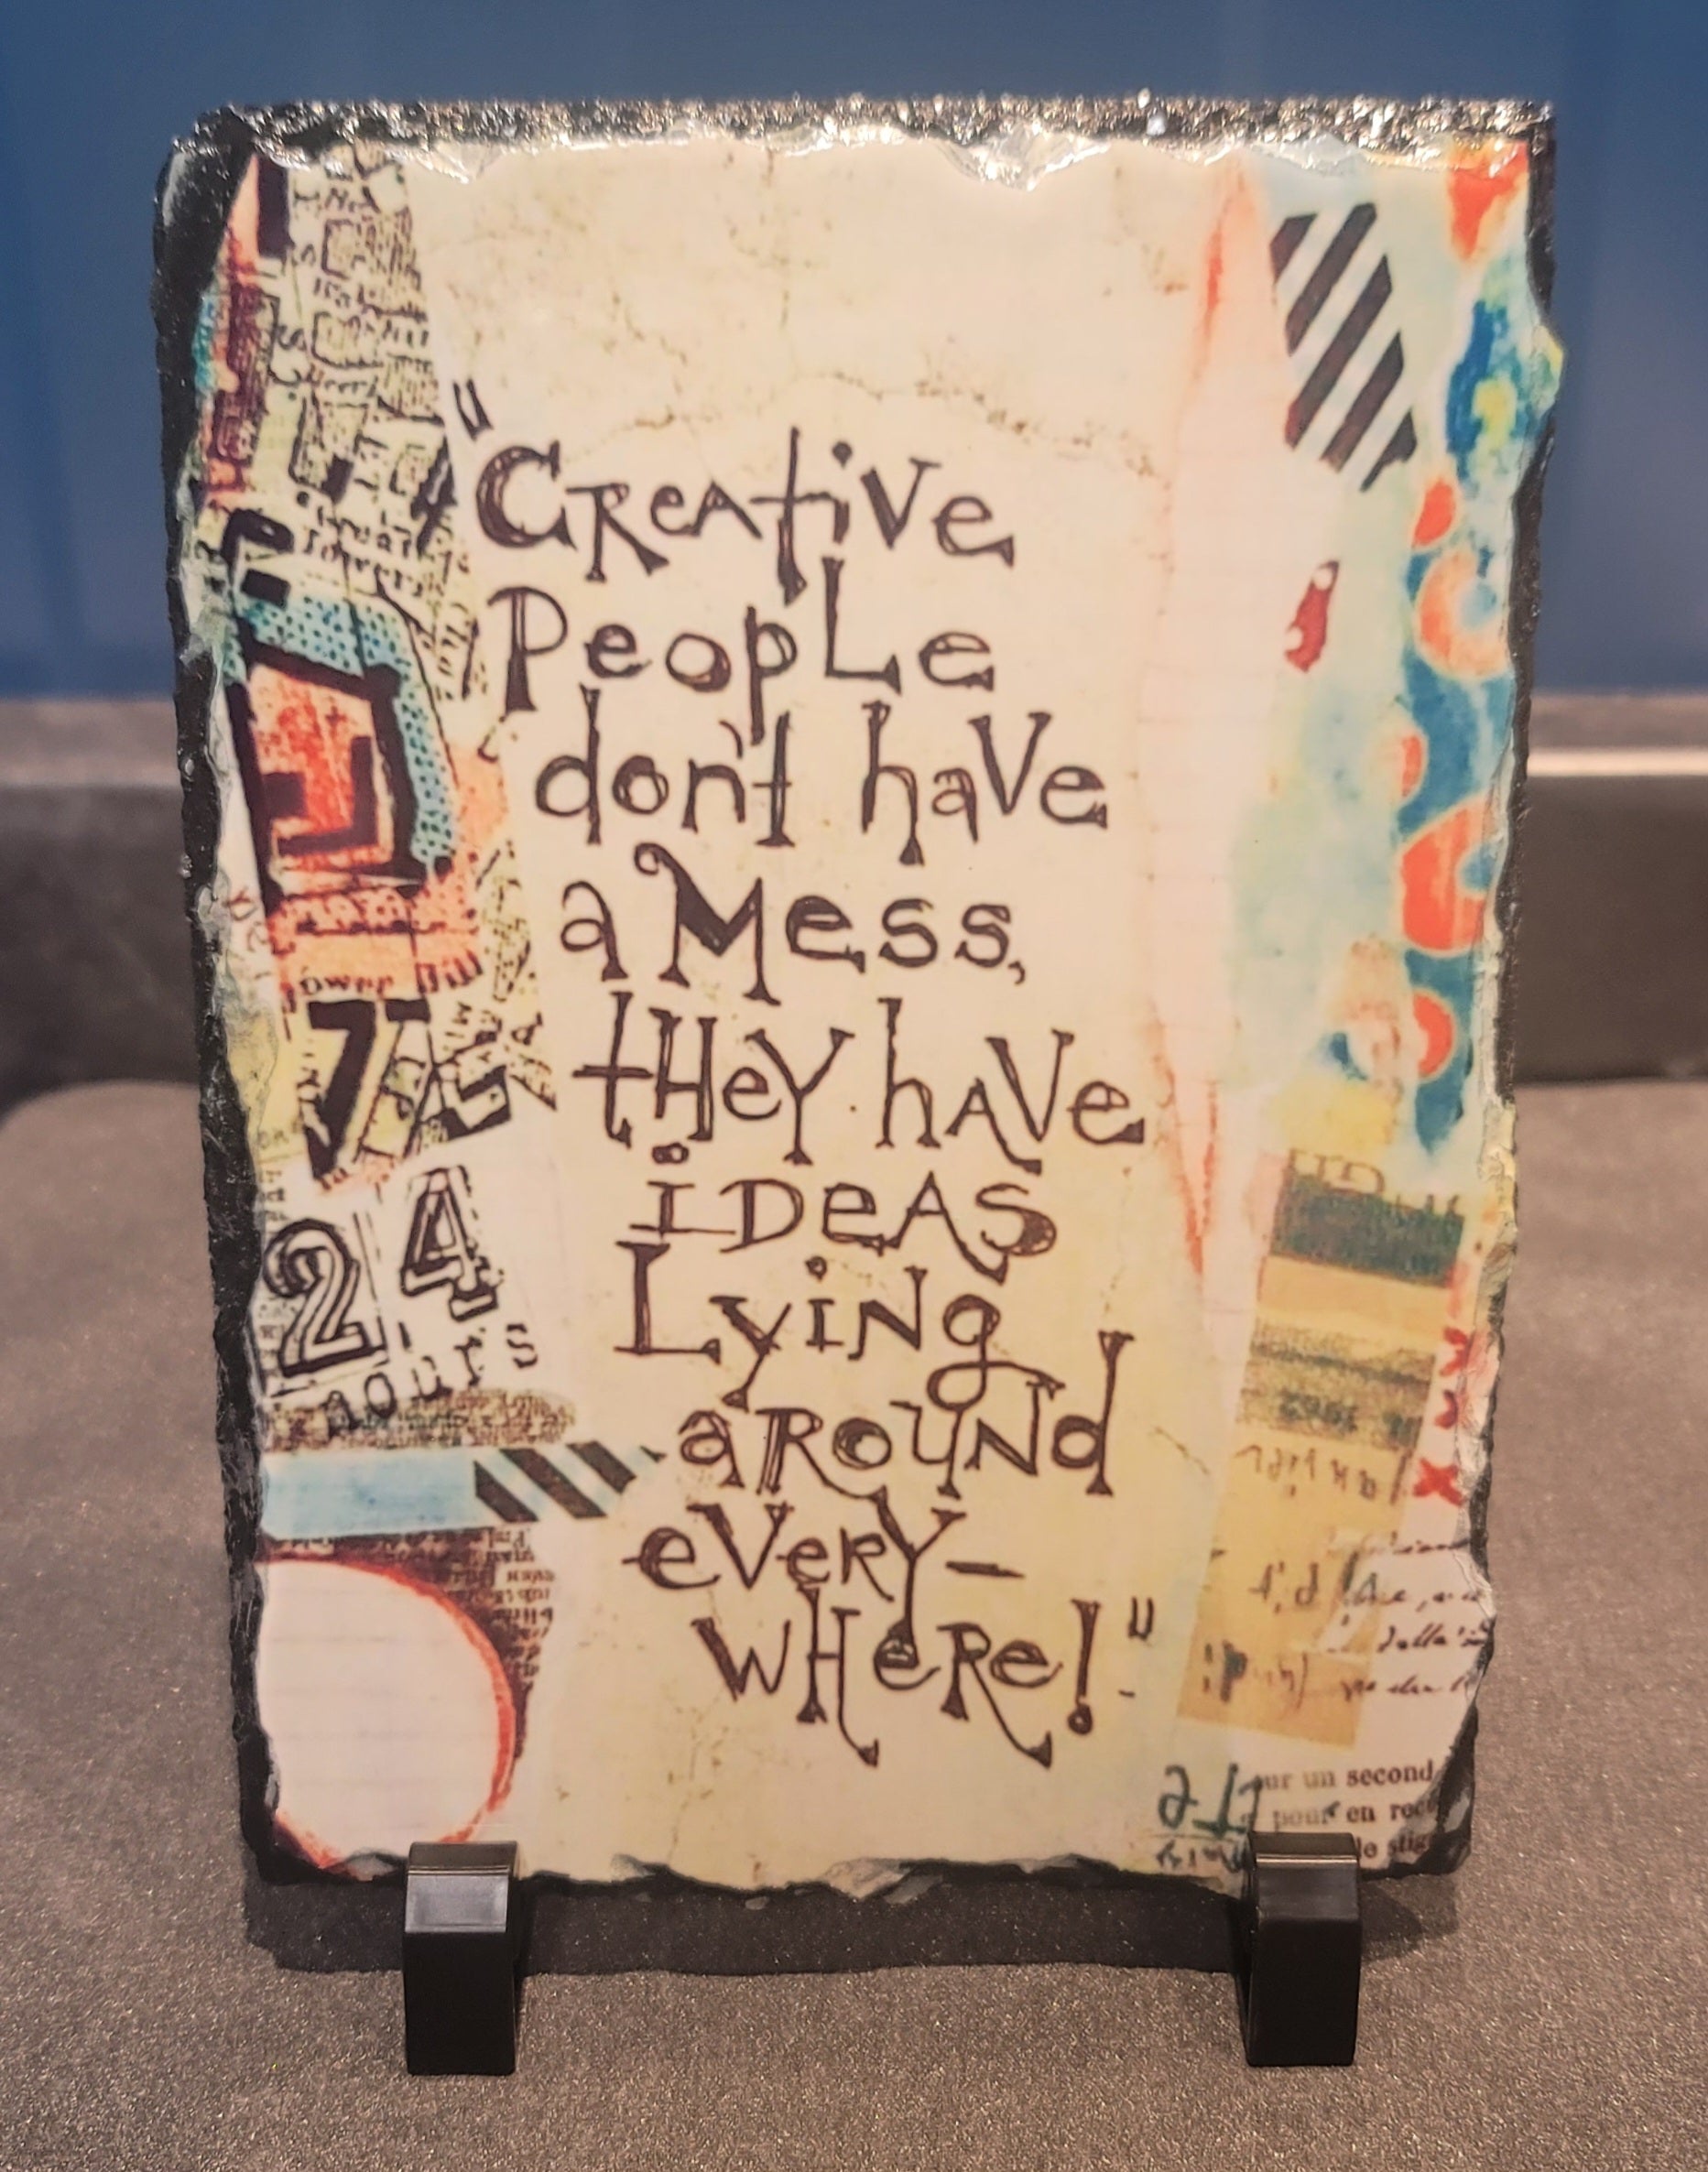 "Creative
People
don't have
a Mess,
they have
ideas
Lying
around
every-
where!"
24
hours
ur un second
pour en